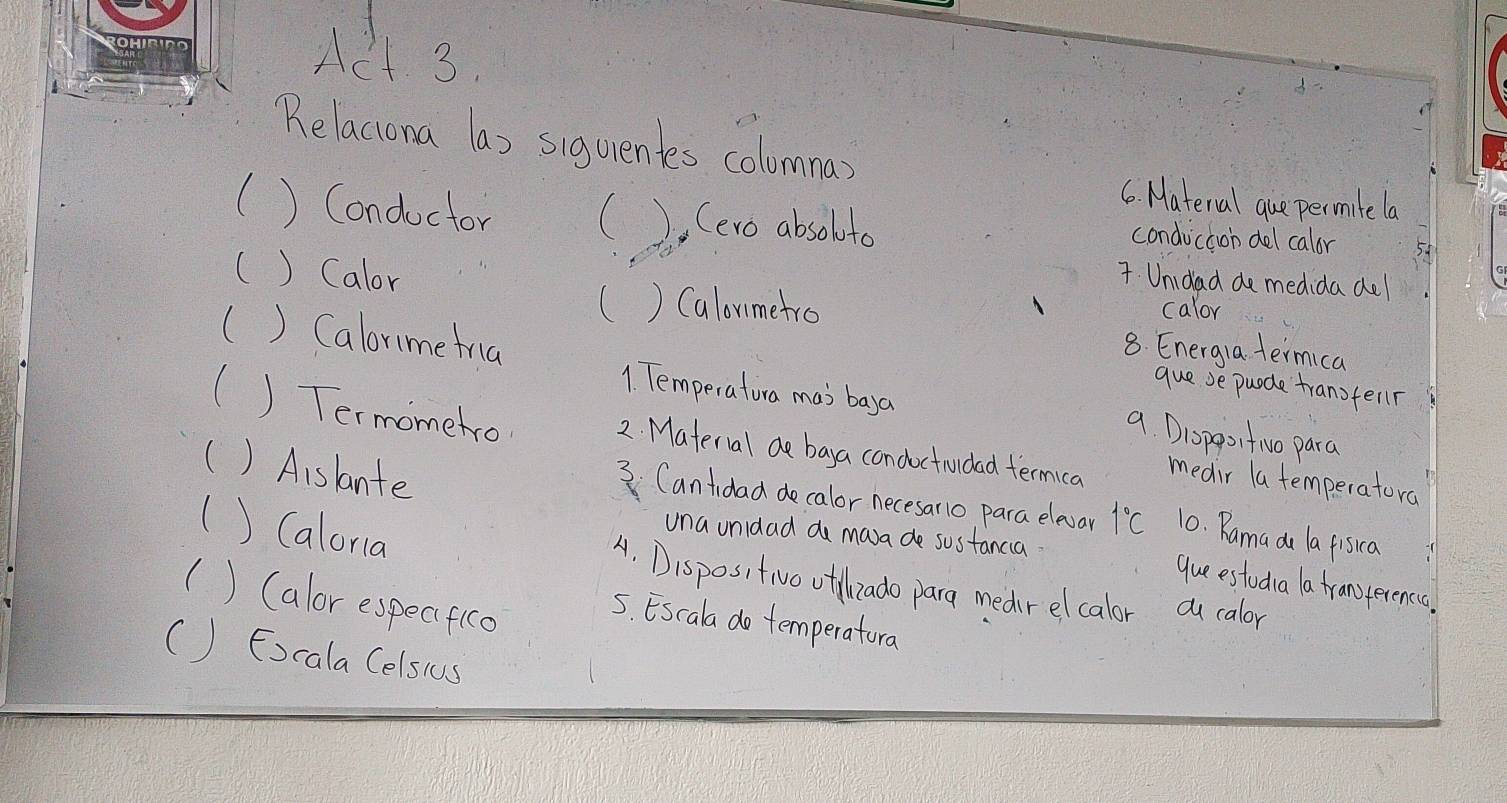 PROHIBIDO
Act. 3.
Relaciona las siguientes columnas
( ) Conductor
( ) Calor
( ) Calorimetria
( ) Termómetro
( ) Aislante
( ) Caloria
( ) Calor especifico
( ) Escala Celsius
( ) Cero absoluto
( ) Calorimetro
1. Temperatura mas baja
2. Material de baja conductividad térmica
3. Cantidad de calor necesario para elevar 1°C
una unidad de masa de sustancia
4. Dispositivo utilizado para medir el calor
5. Escala de temperatura
6. Material que permite la
conduccion del calor
7. Unidad de medida del
calor
8. Energia térmica
que se puede transferir
9. Dispositivo para
medir la temperatura
10. Rama de la fisica
que estudia la transferencia
de calor